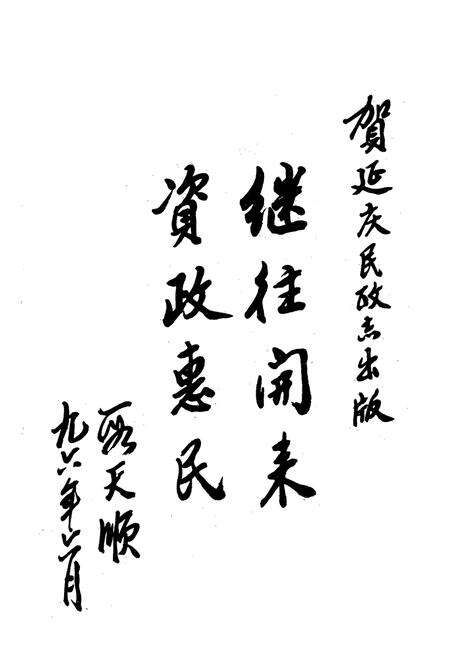 賀延庆民政志出版
继往開来
資政惠民
段天顺
九六年六月